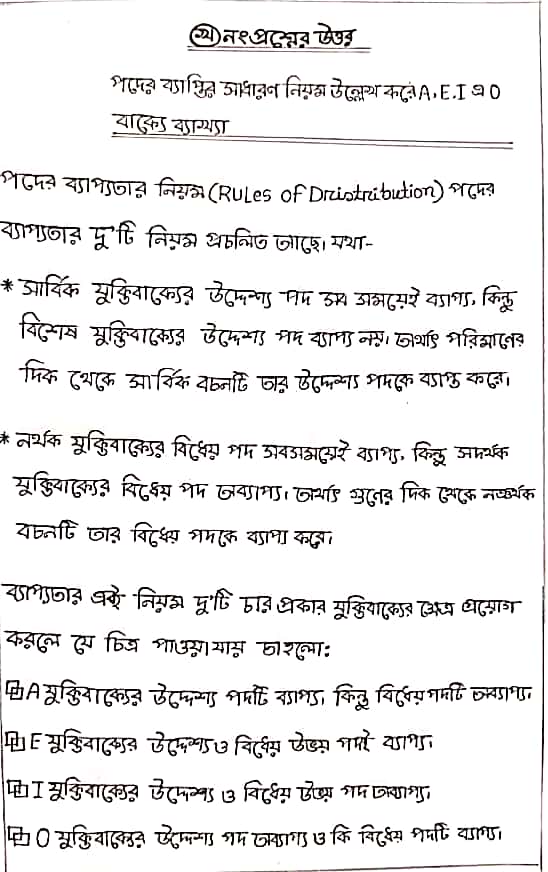 (খ) নং প্রশ্নের উত্তর
পদের ব্যাপ্তির সাধারণ নিয়ম উল্লেখ করে A, E, I ও O
বাক্যে ব্যাখ্যা
পদের ব্যাপ্যতার নিয়ম (Rules of Dristribution) পদের
ব্যাপ্যতার দু'টি নিয়ম প্রচলিত আছে। যথা-
* সার্বিক যুক্তিবাক্যের উদ্দেশ্য পদ সব সময়েই ব্যাপ্য, কিন্তু
বিশেষ যুক্তিবাক্যের উদ্দেশ্য পদ ব্যাপ্য নয়। অর্থাৎ পরিমানের
দিক থেকে সার্বিক বচনটি তার উদ্দেশ্য পদকে ব্যাপ্ত করে।
* নর্থক যুক্তিবাক্যের বিধেয় পদ সবসময়েই ব্যাপ্য, কিন্তু সদর্থক
যুক্তিবাক্যের বিধেয় পদ অব্যাপ্য। অর্থাৎ গুনের দিক থেকে নঞর্থক
বচনটি তার বিধেয় পদকে ব্যাপ্য করে।
ব্যাপ্যতার এই নিয়ম দু'টি চার প্রকার যুক্তিবাক্যের ক্ষেত্র প্রয়োগ
করলে যে চিত্র পাওয়া যায় তাহলো:
A যুক্তিবাক্যের উদ্দেশ্য পদটি ব্যাপ্য, কিন্তু বিধেয় পদটি অব্যাপ্য।
E যুক্তিবাক্যের উদ্দেশ্য ও বিধেয় উভয় পদই ব্যাপ্য।
I যুক্তিবাক্যের উদ্দেশ্য ও বিধেয় উভয় পদ অব্যাপ্য।
O যুক্তিবাক্যের উদ্দেশ্য পদ অব্যাপ্য ও কি বিধেয় পদটি ব্যাপ্য।